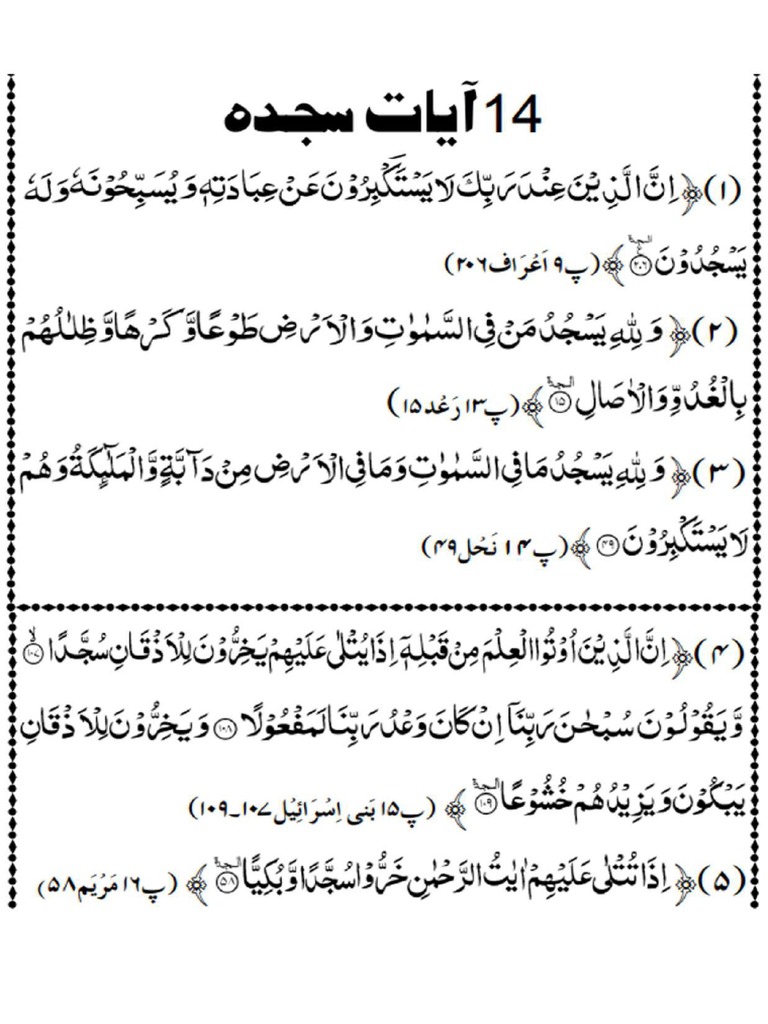 14 آیات سجدہ
(۱)﴿اِنَّ الَّذِیْنَ عِنْدَ رَبِّكَ لَا یَسْتَكْبِرُوْنَ عَنْ عِبَادَتِهٖ وَ یُسَبِّحُوْنَهٗ وَ لَهٗ
یَسْجُدُوْنَ۠ ۩ ۲۰۶﴾ (پ۹ اَعْرَاف۲۰۶)
(۲)﴿وَ لِلّٰهِ یَسْجُدُ مَنْ فِی السَّمٰوٰتِ وَ الْاَرْضِ طَوْعًا وَّ كَرْهًا وَّ ظِلٰلُهُمْ
بِالْغُدُوِّ وَ الْاٰصَالِ ۩ ۱۵﴾ (پ۱۳ رَعْد۱۵)
(۳)﴿وَ لِلّٰهِ یَسْجُدُ مَا فِی السَّمٰوٰتِ وَ مَا فِی الْاَرْضِ مِنْ دَآبَّةٍ وَّ الْمَلٰٓىٕكَةُ وَ هُمْ
لَا یَسْتَكْبِرُوْنَ ۴۹﴾ (پ۱۴ نَحْل۴۹)
(۴)﴿اِنَّ الَّذِیْنَ اُوْتُوا الْعِلْمَ مِنْ قَبْلِهٖۤ اِذَا یُتْلٰى عَلَیْهِمْ یَخِرُّوْنَ لِلْاَذْقَانِ سُجَّدًاۙ ۱۰۷
وَّ یَقُوْلُوْنَ سُبْحٰنَ رَبِّنَاۤ اِنْ كَانَ وَعْدُ رَبِّنَا لَمَفْعُوْلًا ۱۰۸ وَ یَخِرُّوْنَ لِلْاَذْقَانِ
یَبْكُوْنَ وَ یَزِیْدُهُمْ خُشُوْعًا ۩ ۱۰۹﴾ (پ۱۵ بَنی اِسْرَائِیْل۱۰۷۔۱۰۹)
(۵)﴿اِذَا تُتْلٰى عَلَیْهِمْ اٰیٰتُ الرَّحْمٰنِ خَرُّوْا سُجَّدًا وَّ بُكِیًّا ۩ ۵۸﴾ (پ۱۶ مَرْیَم۵۸)